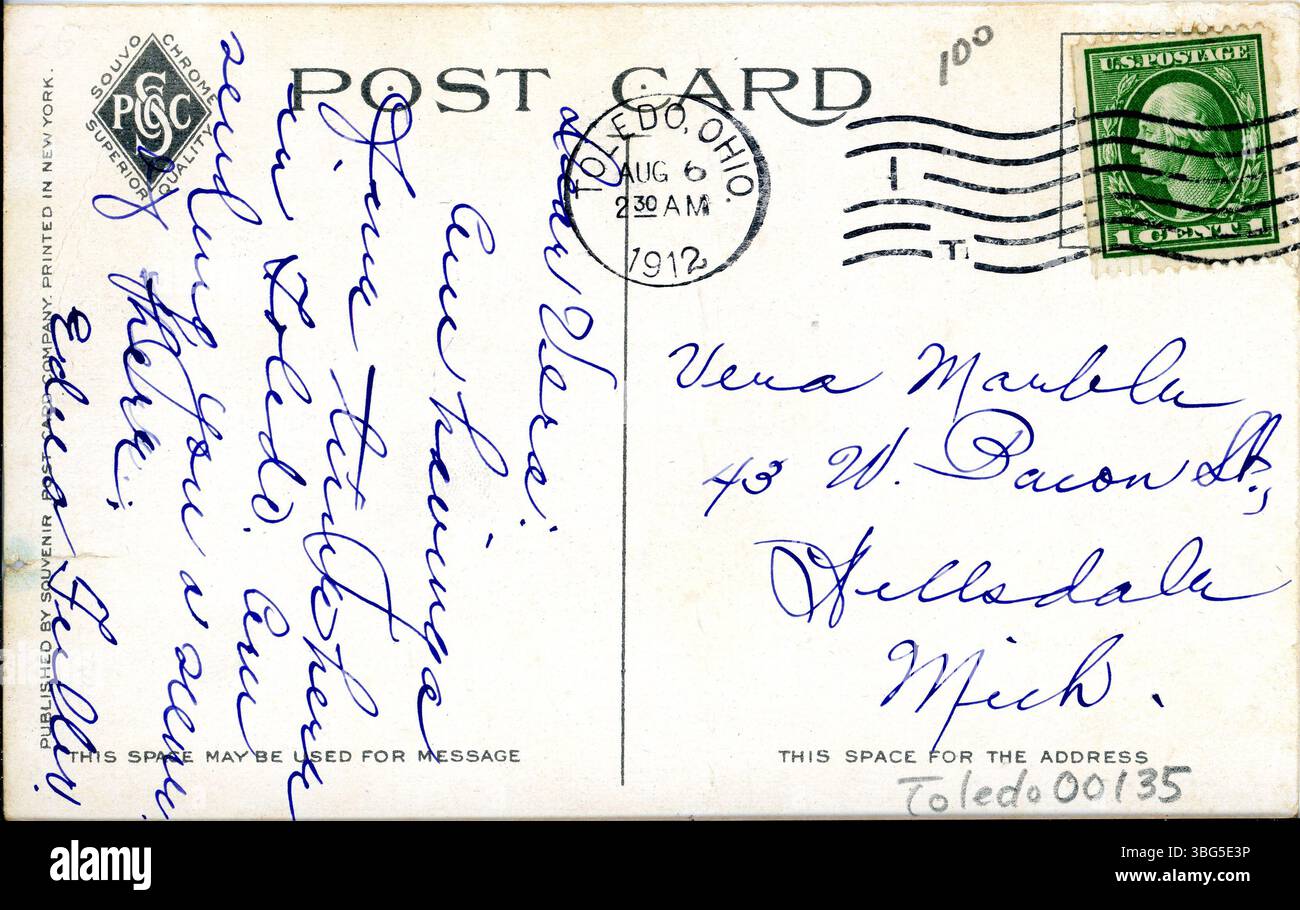 POST CARD
SOUVO CHROME
SUPERIOR QUALITY
PUBLISHED BY SOUVENIR POST CARD COMPANY. PRINTED IN NEW YORK.
100
U.S. POSTAGE
1 CENT 1
TOLEDO, OHIO.
AUG 6
2 30 AM
1912
Dear Vera:
Am having a
fine time here
in Toledo. Am
send ing you a view
of there.
Edna Fuller.
Vera Marble
43 W. Bacon St.,
Hillsdale
Mich.
THIS SPACE MAY BE USED FOR MESSAGE
THIS SPACE FOR THE ADDRESS
Toledo 00135
alamy
Image ID: 2BG5E3P
www.alamy.com